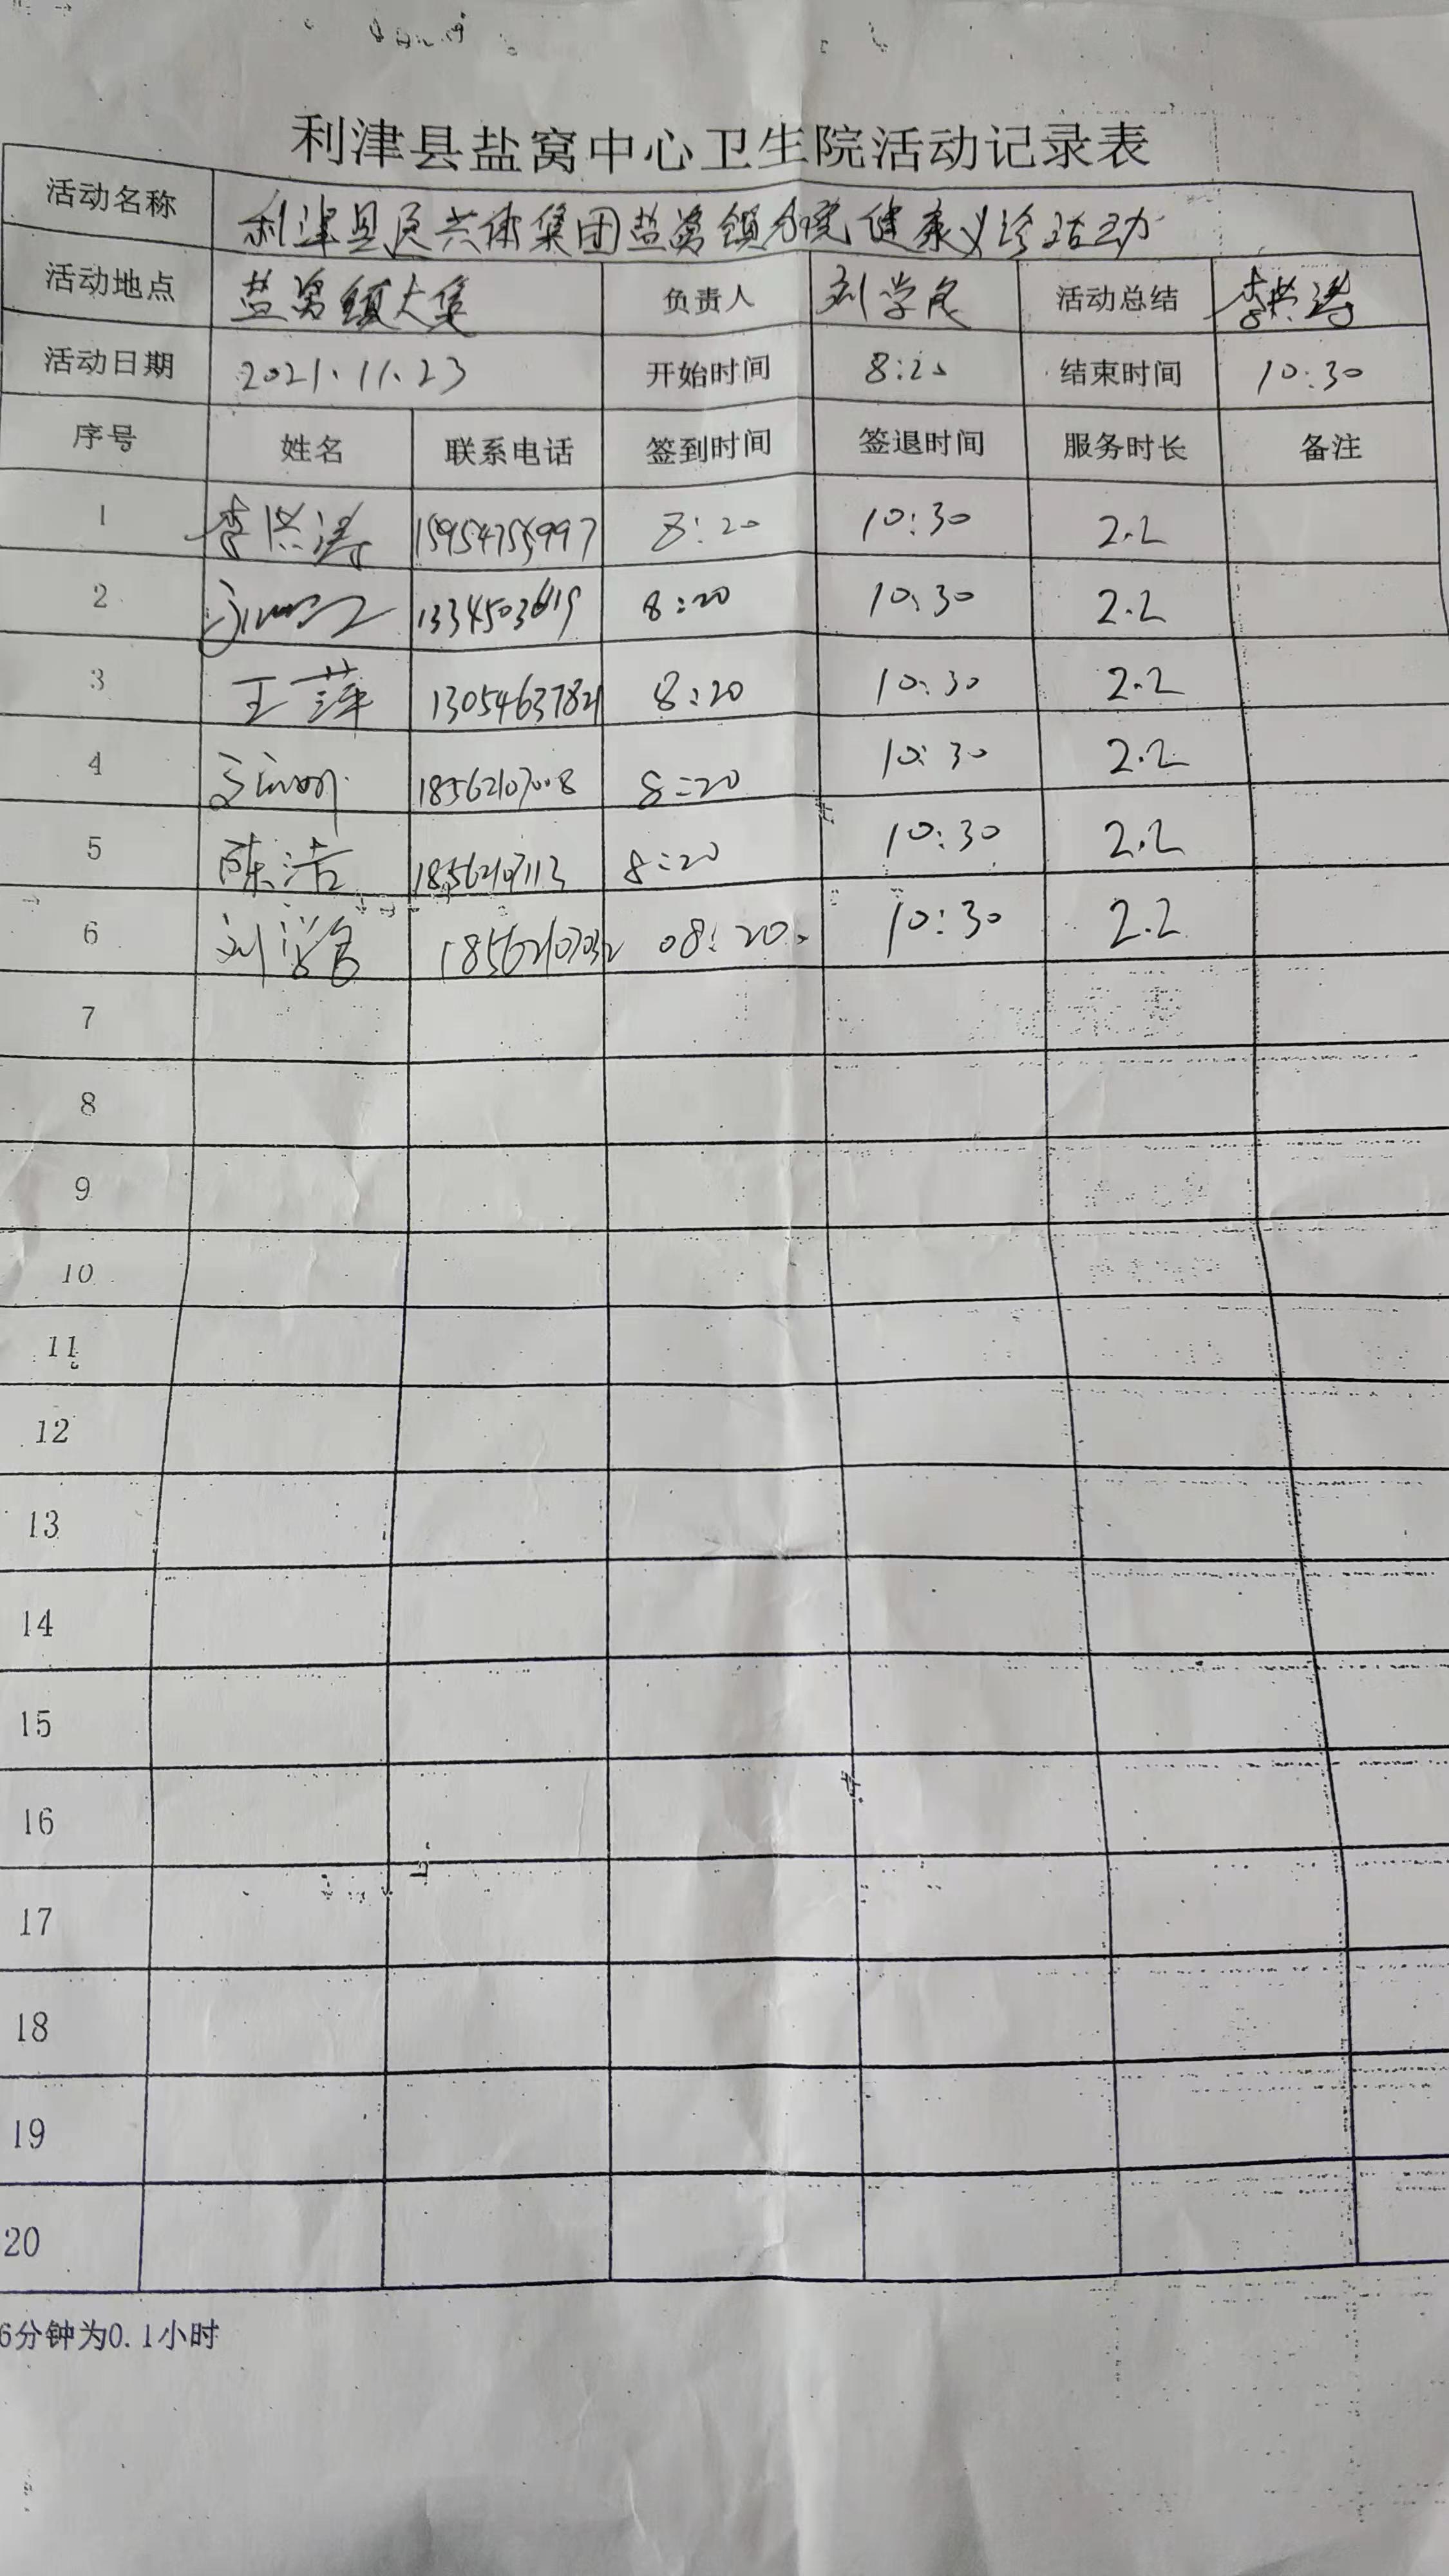 利津县盐窝中心卫生院活动记录表
活动名称 利津县医共体集团盐窝镇分院健康义诊活动
活动地点 盐窝镇大集 负责人 刘学民 活动总结 李洪涛
活动日期 2021.11.23 开始时间 8:20 结束时间 10:30
序号 姓名 联系电话 签到时间 签退时间 服务时长 备注
1 李洪涛 8:20 10:30 2.2
2 8:20 10:30 2.2
3 王萍 13054637821 8:20 10:30 2.2
4 18562107008 8:20 10:30 2.2
5 陈洁 18562107113 8:20 10:30 2.2
6 18562107032 08:20 10:30 2.2
7
8
9
10
11
12
13
14
15
16
17
18
19
20
6分钟为0.1小时